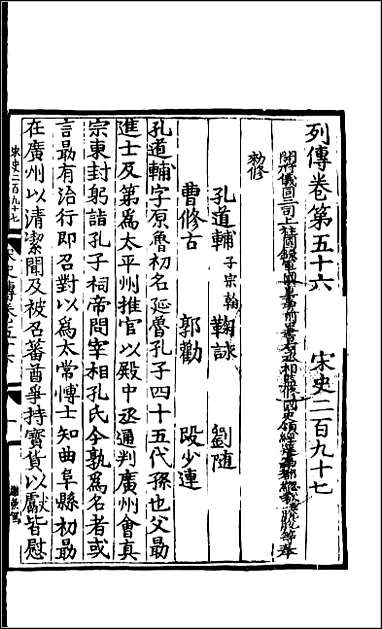 列傳卷第五十六　宋史二百九十七
開府儀同三司上柱國錄軍國重事前中書右丞相監修國史領經筵事都總裁臣脫脫等奉
勑修
孔道輔子宗翰　鞠詠　劉隨
曹修古　郭勸　段少連
孔道輔字原魯初名延魯孔子四十五代孫也父勗
進士及第為太平州推官以殿中丞通判廣州會真
宗東封躬詣孔子祠帝問宰相孔氏今孰為名者或
言勗有治行即召對以為太常博士知曲阜縣初勗
在廣州以清潔聞及被召蕃酋爭持寶貨以獻皆慰
宋史二百九十七
宋史傳卷五十六
一